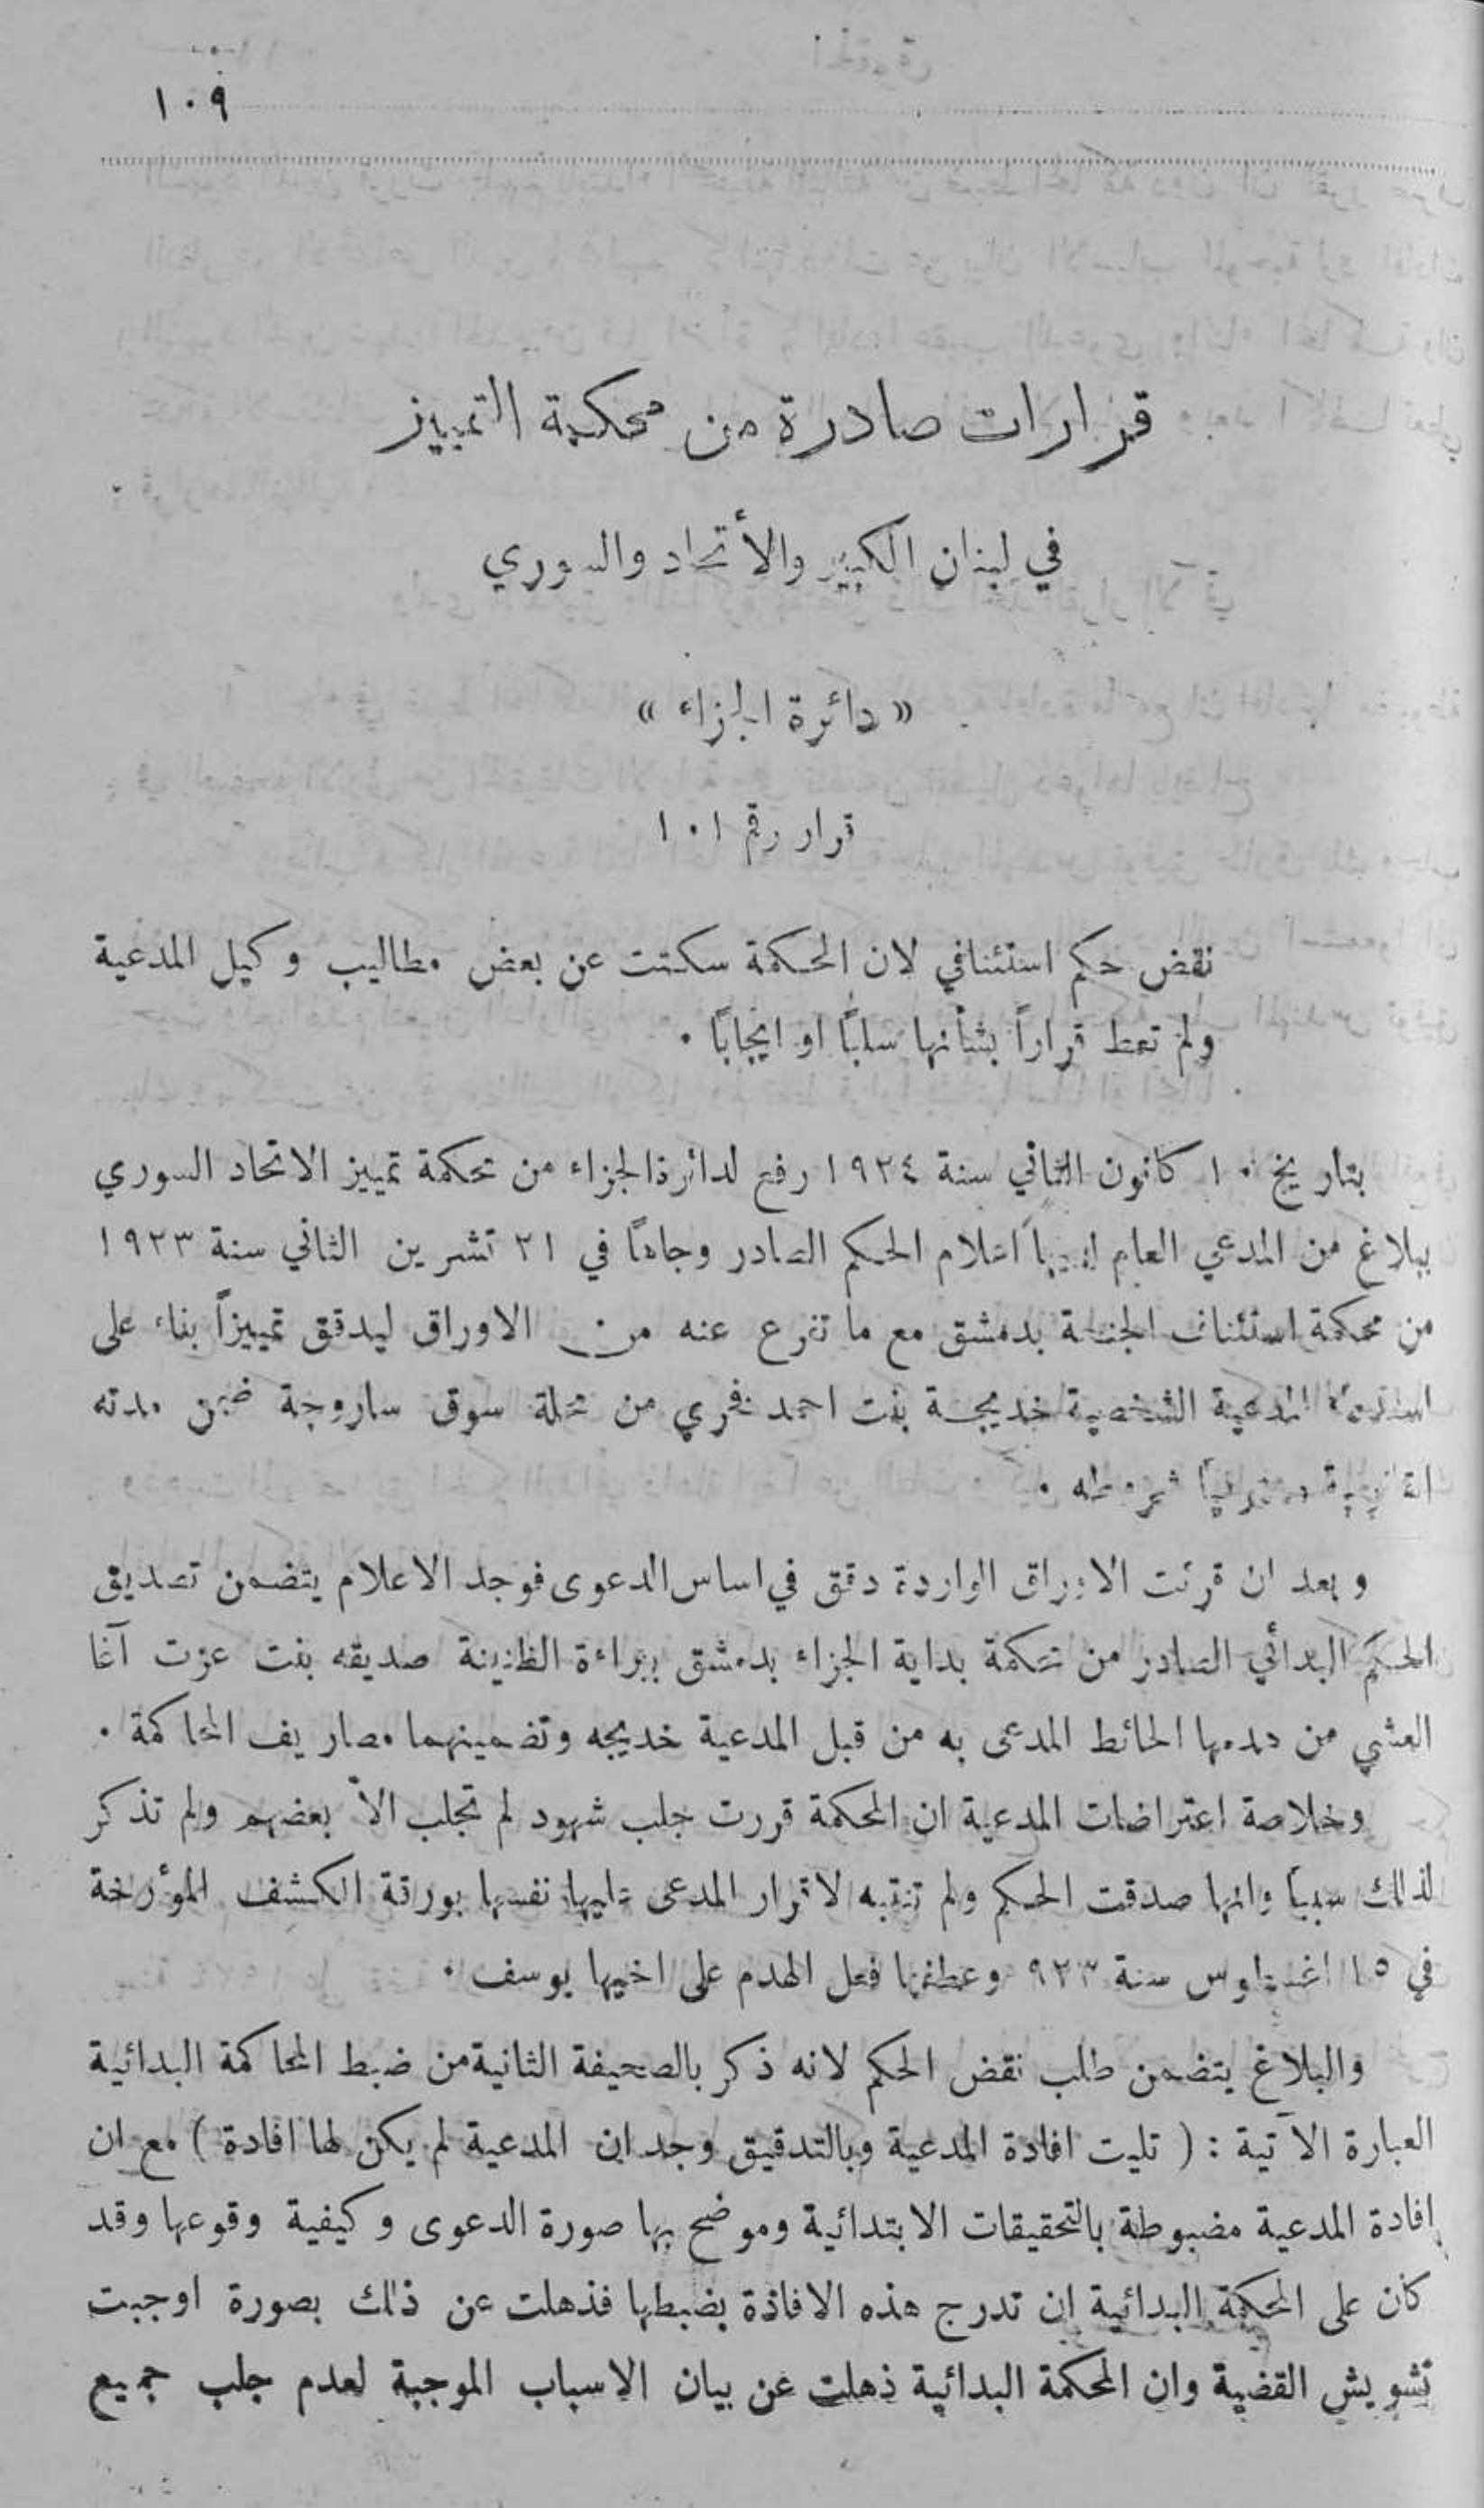 ١٠٩
قرارات صادرة من محكمة التمييز
في لبنان الكبير والأتحاد والسوري
« دائرة الجزاء »
قرار رقم ١٠١
نقض حكم استئنافي لان الحكمة سكتت عن بعض مطاليب وكيل المدعية
ولم تعط قراراً بشأنها سلبًا او ايجابًا ٠
بتاريخ ١٠ كانون الثاني سنة ١٩٢٤ رفع لدائرة الجزاء من محكمة تمييز الاتحاد السوري
ببلاغ من المدعي العام اعلام الحكم الصادر وجاهًا في ٢١ تشرين الثاني سنة ١٩٢٣
من محكمة استئناف الجنحة بدمشق مع ما تفرع عنه من الاوراق ليدقق تمييزاً بناء على
استدعاء المدعية الشخصية خديجة بنت احمد فخري من محلة سوق ساروجة ضمن مدته
القانونية مستوفيًا شروطه ٠
وبعد ان قرئت الاوراق الواردة دقق في اساس الدعوى فوجد الاعلام يتضمن تصديق
الحكم البدائي الصادر من محكمة بداية الجزاء بدمشق ببراءة الظنينة صديقه بنت عزت آغا
العشي من هدمها الحائط المدعى به من قبل المدعية خديجه وتضمينهما مصاريف المحاكمة ٠
وخلاصة اعتراضات المدعية ان المحكمة قررت جلب شهود لم تجلب الاّ بعضهم ولم تذكر
لذلك سببًا وانها صدقت الحكم ولم تنتبه لاقرار المدعى عليها نفسها بورقة الكشف المؤرخة
في ١٥ اغسطوس سنة ٩٢٣ وعطفها فعل الهدم على اخيها يوسف ٠
والبلاغ يتضمن طلب نقض الحكم لانه ذكر بالصحيفة الثانية من ضبط المحاكمة البدائية
العبارة الآتية : ( تليت افادة المدعية وبالتدقيق وجد ان المدعية لم يكن لها افادة ) مع ان
افادة المدعية مضبوطة بالتحقيقات الابتدائية وموضح بها صورة الدعوى وكيفية وقوعها وقد
كان على المحكمة البدائية ان تدرج هذه الافادة بضبطها فذهلت عن ذلك بصورة اوجبت
تشويش القضية وان المحكمة البدائية ذهلت عن بيان الاسباب الموجبة لعدم جلب جميع